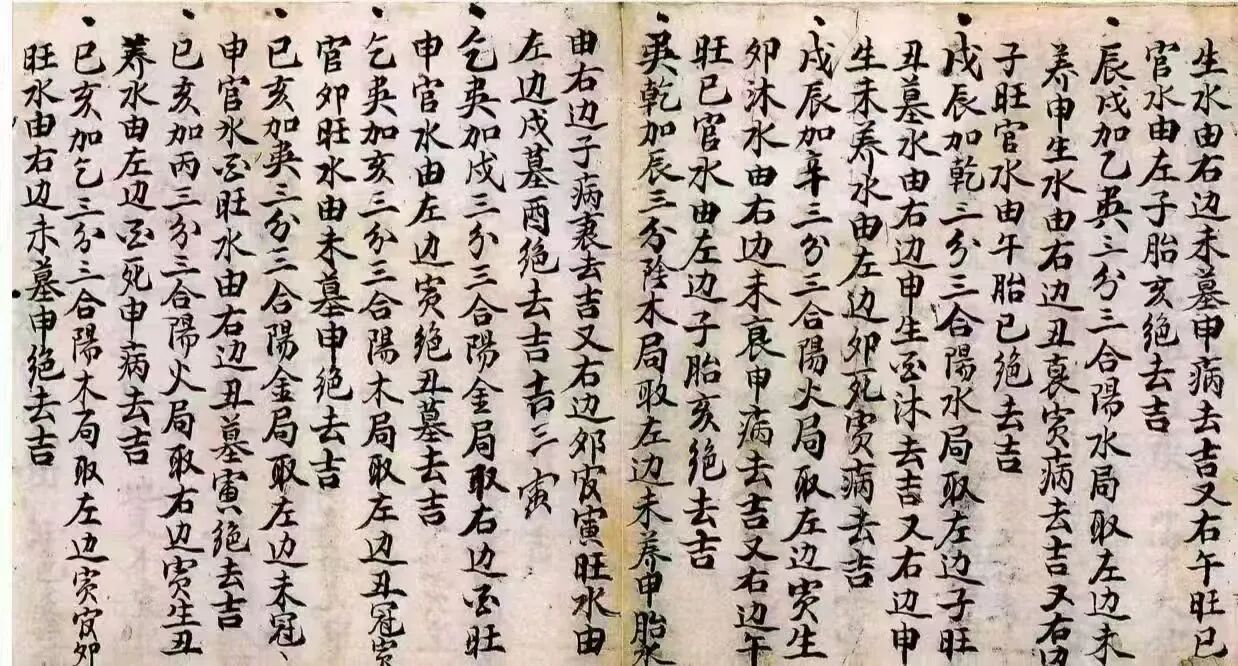 生水由右边未墓申病去吉又右午旺巳
官水由左子胎亥绝去吉
辰戌加乙兵三分三合陽水局取左边未
养申生水由右边丑衰寅病去吉又右边
子旺官水由午胎巳绝去吉
戊辰加乾三分三合陽水局取左边子旺
丑墓水由右边申生酉沐去吉又右边申
生未养水由左边卯死寅病去吉
戊辰加辛三分三合陽火局取左边寅生
卯沐水由右边未衰申病去吉又右边午
旺巳官水由左边子胎亥绝去吉
兵乾加辰三分陰木局取左边未养申胎水
由右边子病衰去吉又右边卯官寅旺水由
左边戌墓酉绝去吉吉三寅
乞兵加戌三分三合陽金局取右边酉旺
申官水由左边寅绝丑墓去吉
乞兵加亥三分三合陽木局取左边丑冠寅
官卯旺水由未墓申绝去吉
巳亥加兵三分三合陽金局取左边未冠
申官水酉旺水由右边丑墓寅绝去吉
巳亥加丙三分三合陽火局取右边寅生丑
养水由左边酉死申病去吉
巳亥加乞三分三合陽木局取左边寅官卯
旺水由右边未墓申绝去吉